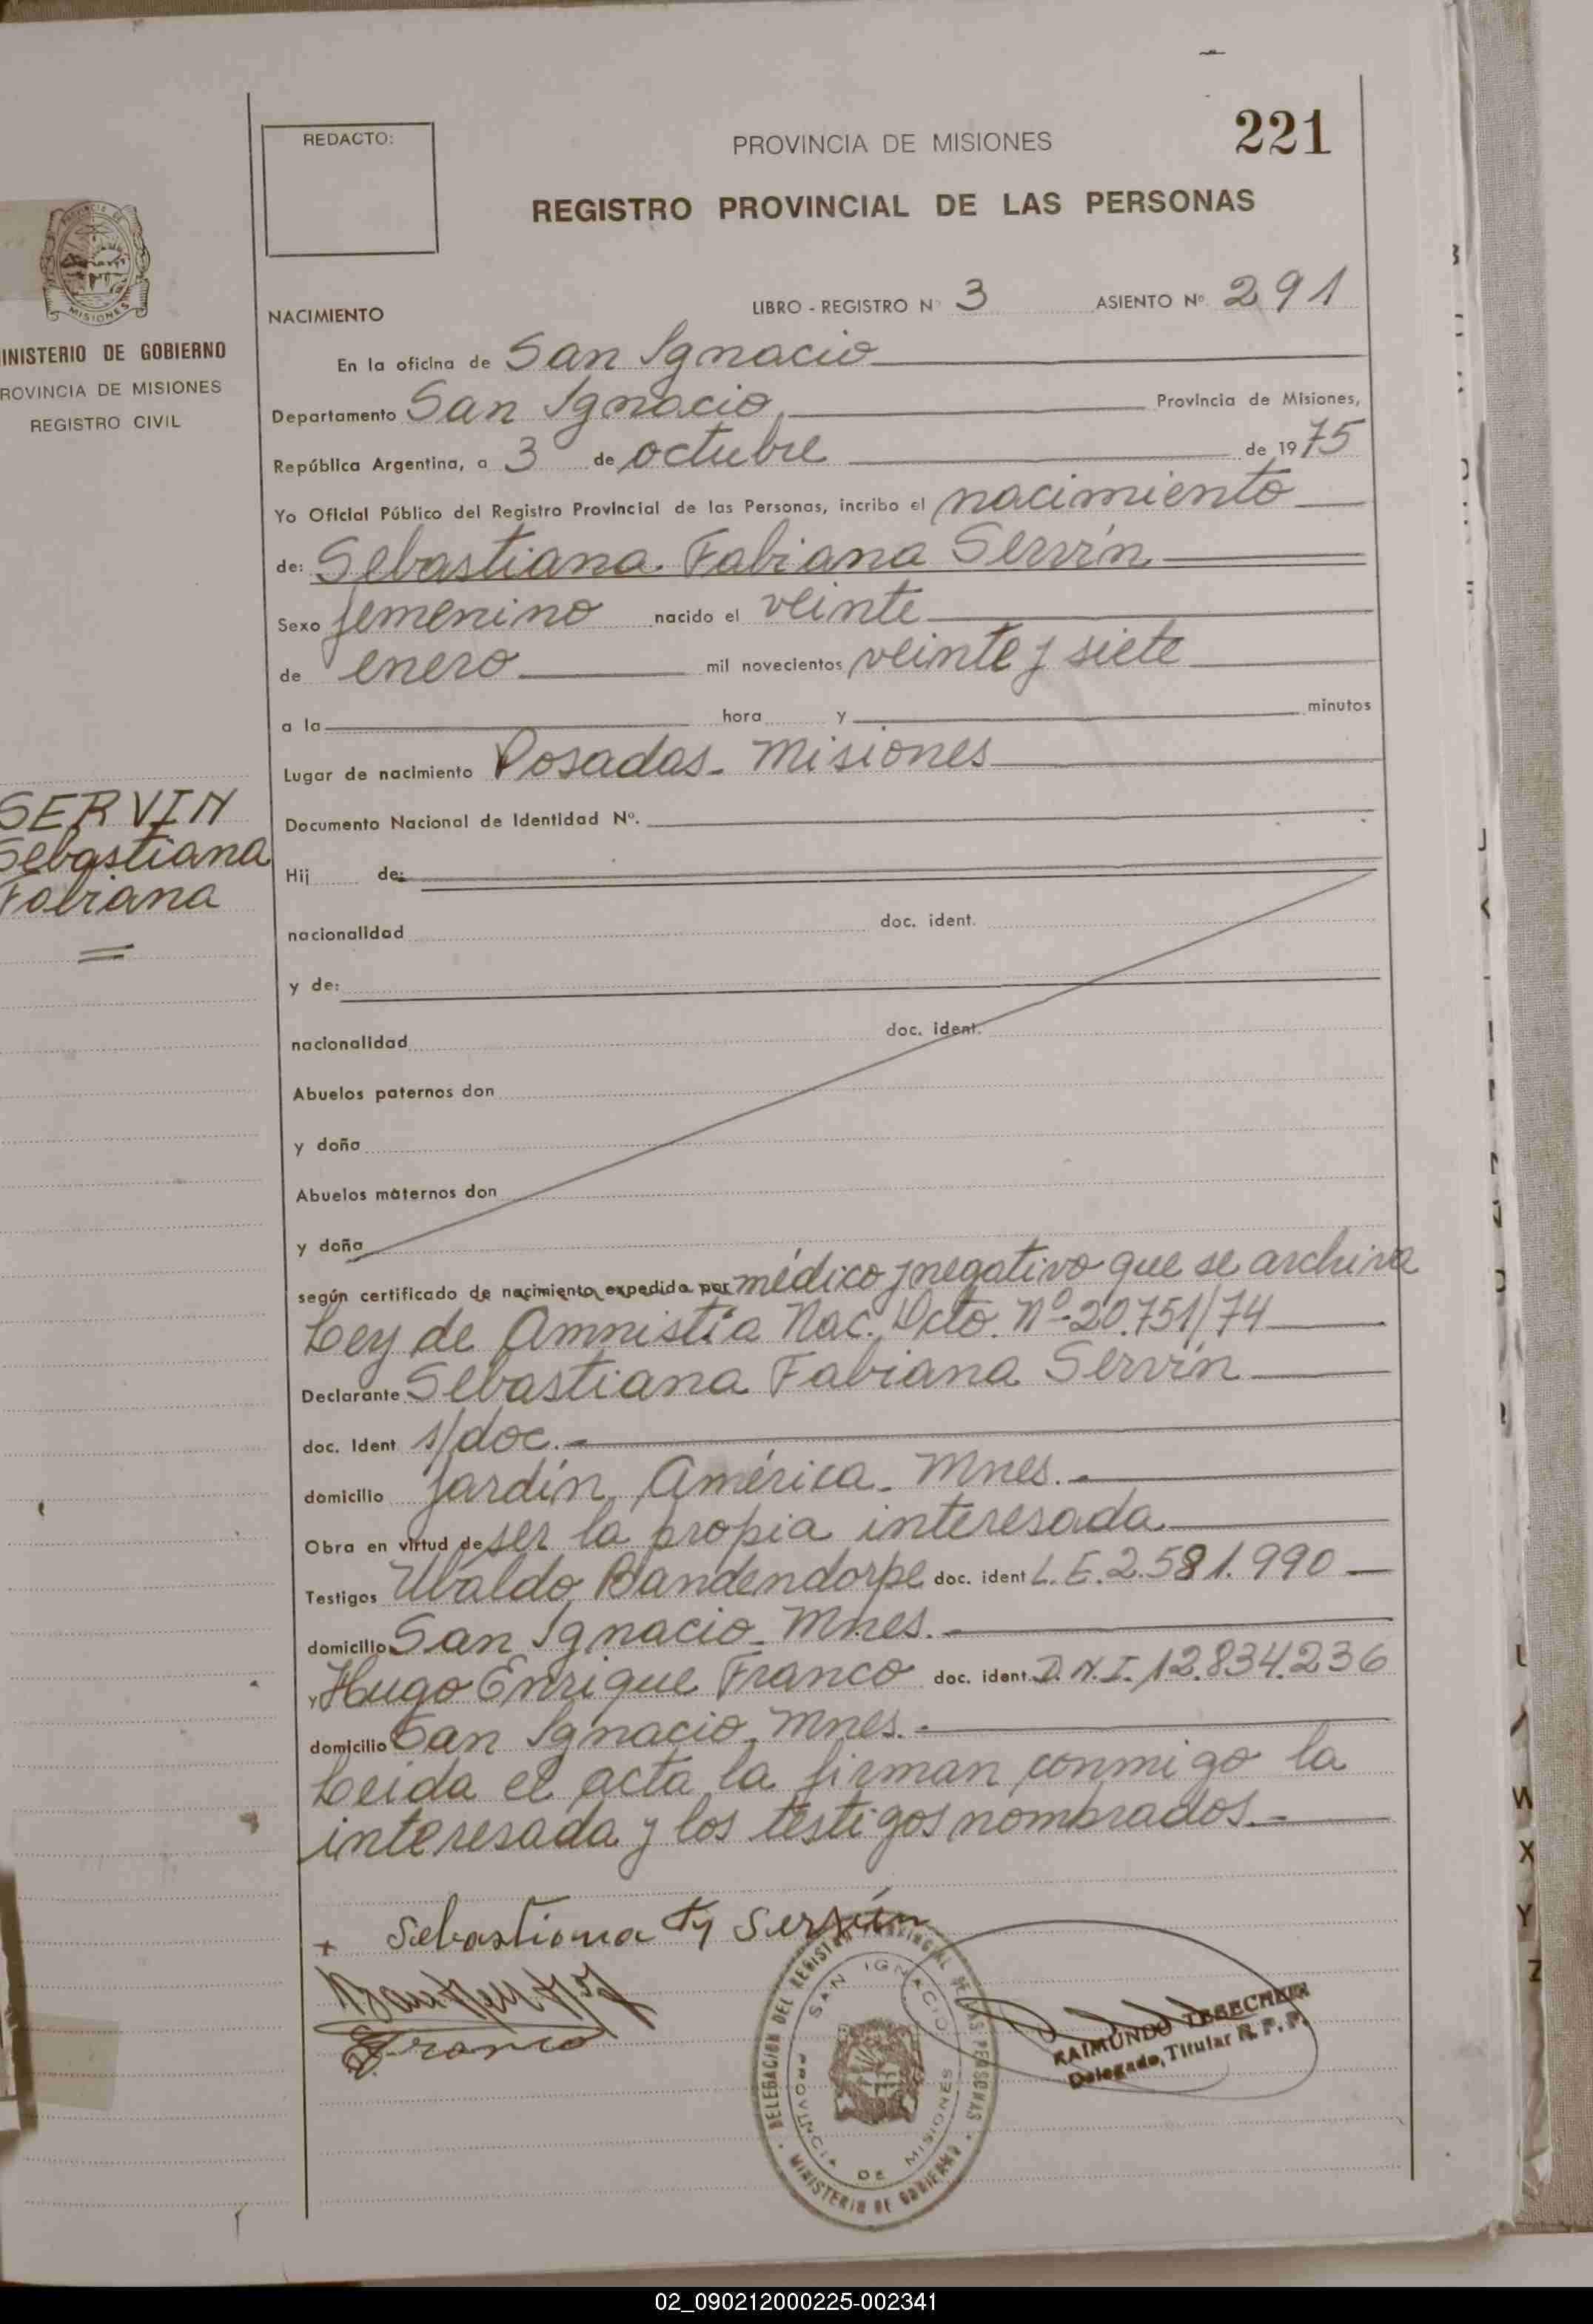 REDACTO:
PROVINCIA DE MISIONES
221
REGISTRO PROVINCIAL DE LAS PERSONAS
MISIONES
INISTERIO DE GOBIERNO
ROVINCIA DE MISIONES
REGISTRO CIVIL
NACIMIENTO LIBRO - REGISTRO Nº 3 ASIENTO Nº 291
En la oficina de San Ignacio
Departamento San Ignacio Provincia de Misiones,
República Argentina, a 3 de octubre de 1975
Yo Oficial Público del Registro Provincial de las Personas, incribo el nacimiento
de: Sebastiana Fabiana Servín
Sexo femenino nacido el veinte
de enero mil novecientos veinte y siete
a la hora y minutos
Lugar de nacimiento Posadas - Misiones
SERVIN
Sebastiana
Fabiana
Documento Nacional de Identidad Nº.
Hij de:
nacionalidad doc. ident.
y de:
nacionalidad doc. ident.
Abuelos paternos don
y doña
Abuelos maternos don
y doña
según certificado de nacimiento expedido por médico y negativo que se archiva
Ley de Amnistía Nac. Dcto. Nº 20.751/74
Declarante Sebastiana Fabiana Servín
doc. Ident s/doc.-
domicilio Jardín América - Mnes.-
Obra en virtud de ser la propia interesada
Testigos Ubaldo Bandendorpe doc. ident L.E. 2.581.990
domicilio San Ignacio - Mnes.-
y Hugo Enrique Franco doc. ident. D.N.I. 12.834.236
domicilio San Ignacio - Mnes.-
Leida el acta la firman conmigo la
interesada y los testigos nombrados.-
+ Sebastiana F Servín
Franco
DELEGACION DEL REGISTRO PROVINCIAL DE LAS PERSONAS
SAN IGNACIO
PROVINCIA DE MISIONES
MINISTERIO DE GOBIERNO
RAIMUNDO
Delegado, Titular R. P. P.
W
X
Y
Z
02_090212000225-002341